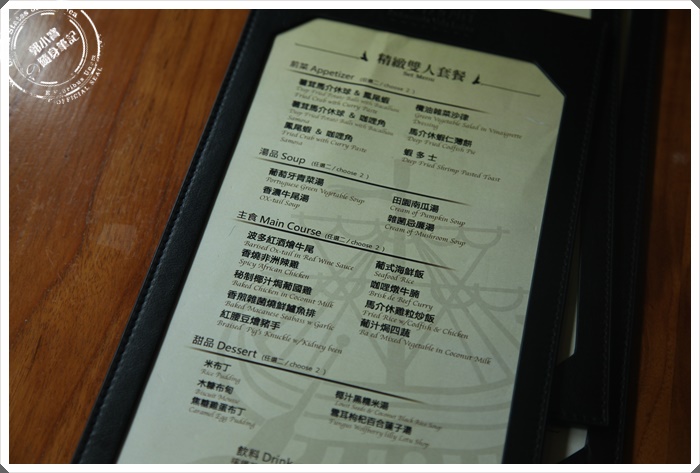 郭小寶
隨身筆記
OFFICIAL SEAL
精緻雙人套餐
Set Menu
前菜 Appetizer (任選二 / choose 2 )
薯茸馬介休球 & 鳳尾蝦
Fried Crab with Curry Paste
薯茸馬介休球 & 咖哩角
Samosa
鳳尾蝦 & 咖哩角
Fried Crab with Curry Paste
Samosa
欖油雜菜沙律
Green Vegetable Salad in Vinaigrette
Dressing
馬介休蝦仁薄餅
Deep Fried Codfish Pie
蝦多士
Deep Fried Shrimp Pasted Toast
湯品 Soup (任選二 / choose 2 )
葡萄牙青菜湯
Portuguese Green Vegetable Soup
香濃牛尾湯
OX-tail Soup
田園南瓜湯
Cream of Pumpkin Soup
雜菌忌廉湯
Cream of Mushroom Soup
主食 Main Course (任選二 / choose 2 )
波多紅酒燴牛尾
Barised Ox-tail in Red Wine Sauce
香燒非洲辣雞
Spicy African Chicken
秘制椰汁焗葡國雞
Baked Chicken in Coconut Milk
香煎雜菌燒鮮鱸魚排
Baked Macanese Seabass w Garlic
紅腰豆燴豬手
Braised Pig's Knuckle w/Kidney been
葡式海鮮飯
Seafood Rice
咖哩燉牛腩
Brisk de Beef Curry
馬介休雞粒炒飯
Fried Rice w/Codfish & Chicken
葡汁焗四蔬
Baked Mixed Vegetable in Coconut Milk
甜品 Dessert (任選二 / choose 2 )
米布丁
Rice Pudding
木糠布甸
Biscuit Mousse
焦糖雞蛋布丁
Caramel Egg Pudding
椰汁黑糯米湯
雪耳枸杞百合蓮子湯
飲料 Drink